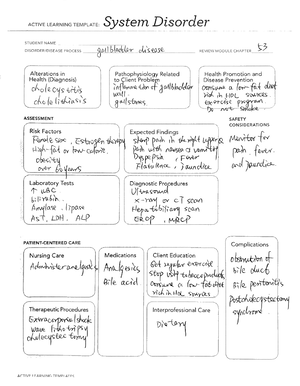 ACTIVE LEARNING TEMPLATE: System Disorder
STUDENT NAME
DISORDER/DISEASE PROCESS gallbladder disease REVIEW MODULE CHAPTER 53
Alterations in
Health (Diagnosis)
cholecystitis
cholelithiasis
Pathophysiology Related
to Client Problem
inflammation of gallbladder
wall.
gallstones
Health Promotion and
Disease Prevention
consume a low-fat diet
rich in HDL sources
exercise program
Do not smoke
ASSESSMENT
SAFETY
CONSIDERATIONS
Risk Factors
Female sex, Estrogen therapy
High-fat or low-calorie,
obesity
over 60 years
Expected Findings
sharp pain in the right upper Q
pain with nausea & vomiting
Dyspepsia, Fever
Flatulence, Jaundice
Monitor for
pain, fever
and jaundice
Laboratory Tests
↑ WBC
bilirubin
Amylase, lipase
AST, LDH, ALP
Diagnostic Procedures
Ultrasound
x-ray or CT scan
Hepatobiliary scan
ERCP, MRCP
PATIENT-CENTERED CARE
Complications
Nursing Care
Administer analgesics
Medications
Analgesics
Bile acid
Client Education
Get regular exercise
stop using tobacco products
consume a low-fat diet
rich in HDL sources
obstruction of
bile duct
Bile peritonitis
Postcholecystectomy
syndrome
Therapeutic Procedures
Extracorporeal shock
wave lithotripsy
cholecystectomy
Interprofessional Care
Dietary
ACTIVE LEARNING TEMPLATES